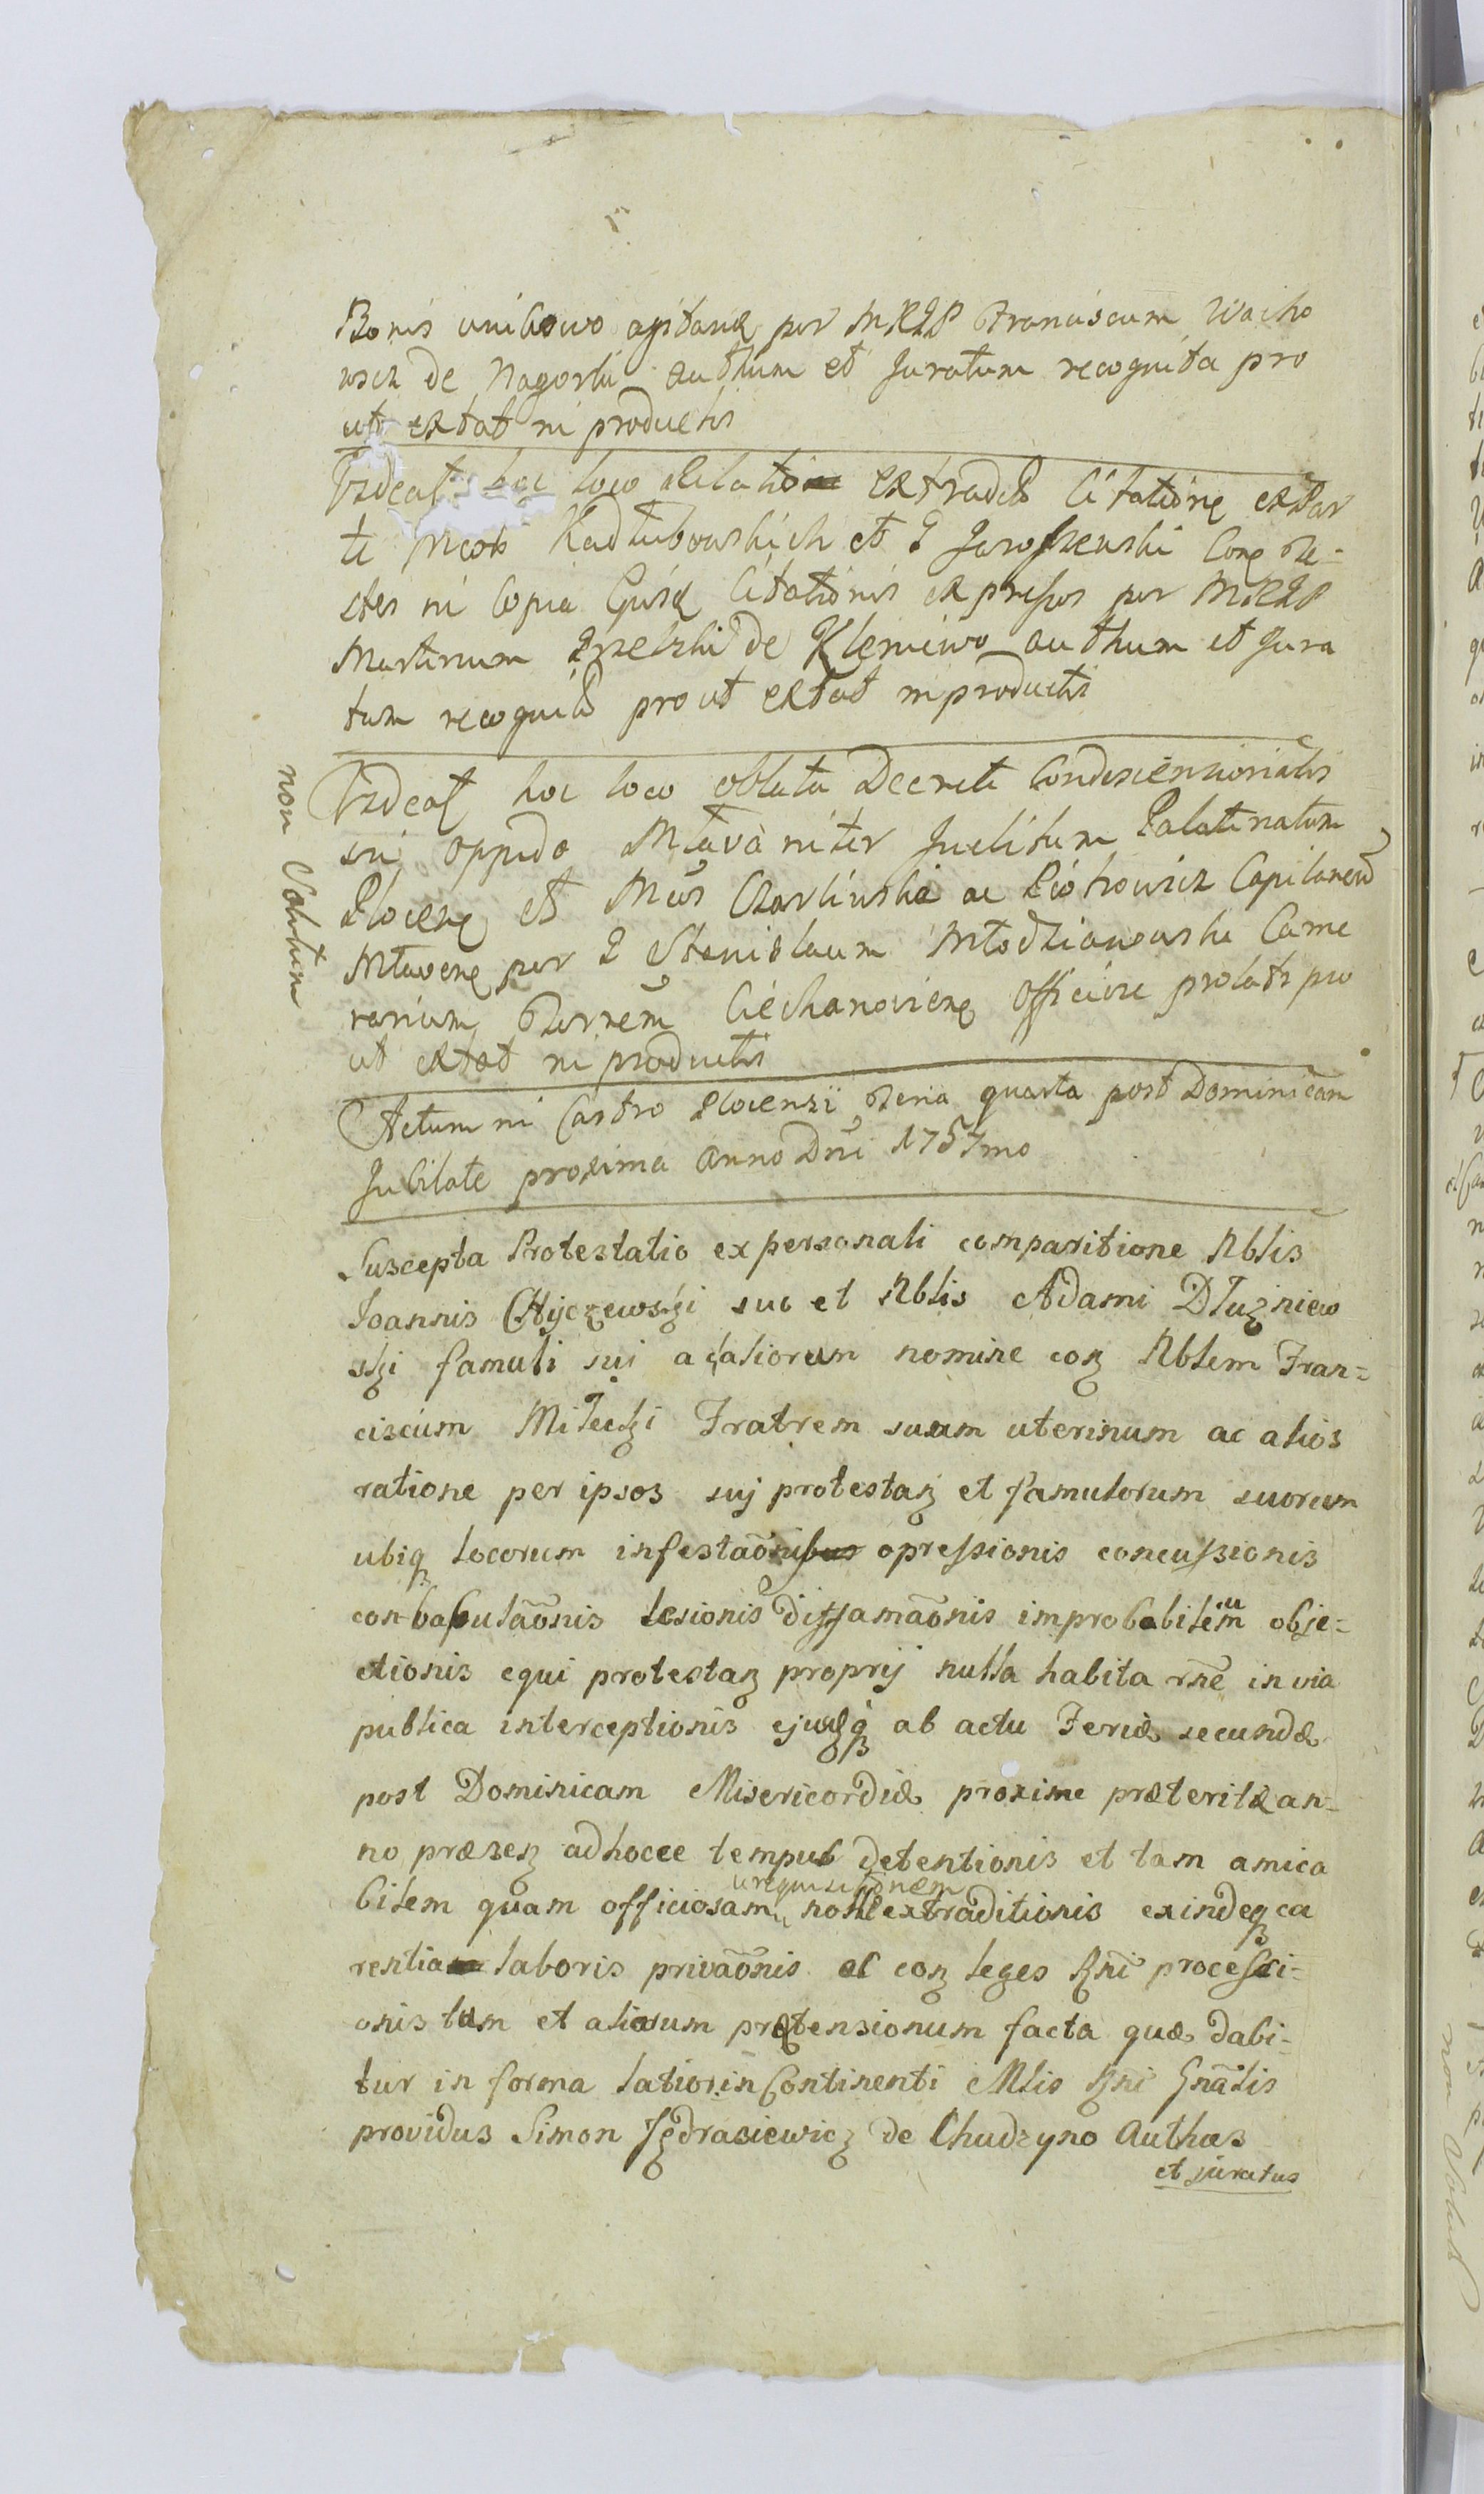 Bonis unikowo agitand per MRZP Franciscum Wacho
wicz de Nagorki authum et Juratum recognita pro
ut extat in productis
Videat hac loco Relatio extradit Citatione ex Par
te Kadłubowskich et G Jaroszewski Con Te-
stes in Copia Ejusd Citationis expressos per MRZP
Martinum de Kleniewo authum et Jura
tum recognit pro ut extat in productis
Videat hoc loco oblata Decreti Condescensionalis
in oppido Mława inter Inclitum Palatinatum
Plocens et Mcos Czarlinski ac Piotrowicz Capitaneum
Młavens per G Stanislaum Młodzianowski Came
rarium Ciechanoviens Officiose prolati pro
ut extat in productis
non Solutum
Actum in Castro Plocensi Feria quarta post Dominicam
Jubilate proxima Anno Dni 1757mo
Suscepta Protestatio ex personali comparitione Nblis
Joannis Chyczewski suo et Nblis Adami Dłuzniew
ski famuli sui ac aliorum nomine con Nblem Fran=
ciscum Miłecki Fratrem suum uterinum ac alios
ratione per ipsos suj protestan et famulorum suorum
ubiq locorum infestaonis opressionis concussionis
conbabulaonis lesionis diffamaonis improbabilem obje=
ctionis equi protestan proprij nulla habita rne in via
publica interceptionis ejusdq ab actu Feriæ secundæ
post Dominicam Misericordiæ proxime præteritæ an=
no præsen adhocce tempus detentionis et tam amica
bilem quam officiosam requisitionem non extraditionis exindeq ca
rentia laboris privaonis ac con leges Rni processi=
onis tum et aliarum prætensionum facta quæ dabi=
tur in forma latiori in Continenti Mlis Rni Gnalis
providus Simon Jędrasiewicz de Chudzyno Authus
et juratus